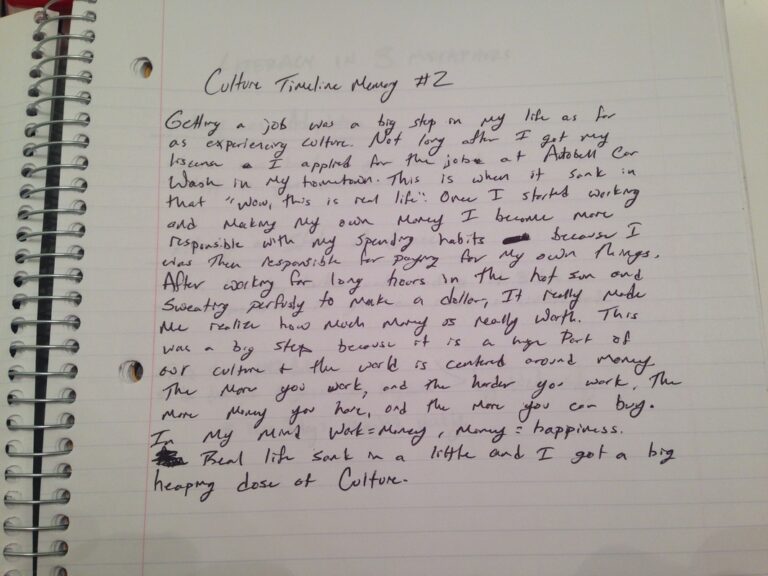 Culture Timeline Memory #2
Getting a job was a big step in my life as far
as experiencing culture. Not long after I got my
liscense I applied for the job at Autobell Car
Wash in my hometown. This is when it sank in
that "Wow, this is real life". Once I started working
and making my own money I became more
responsible with my spending habits because I
was then responsible for paying for my own things.
After working for long hours in the hot sun and
sweating perfusly to make a dollar, It really made
me realize how much money is really worth. This
was a big step because it is a huge part of
our culture + the world is centered around money
The more you work, and the harder you work, The
more money you have, and the more you can buy.
In my mind Work = Money, Money = happiness.
Real life sank in a little and I got a big
heaping dose of Culture.